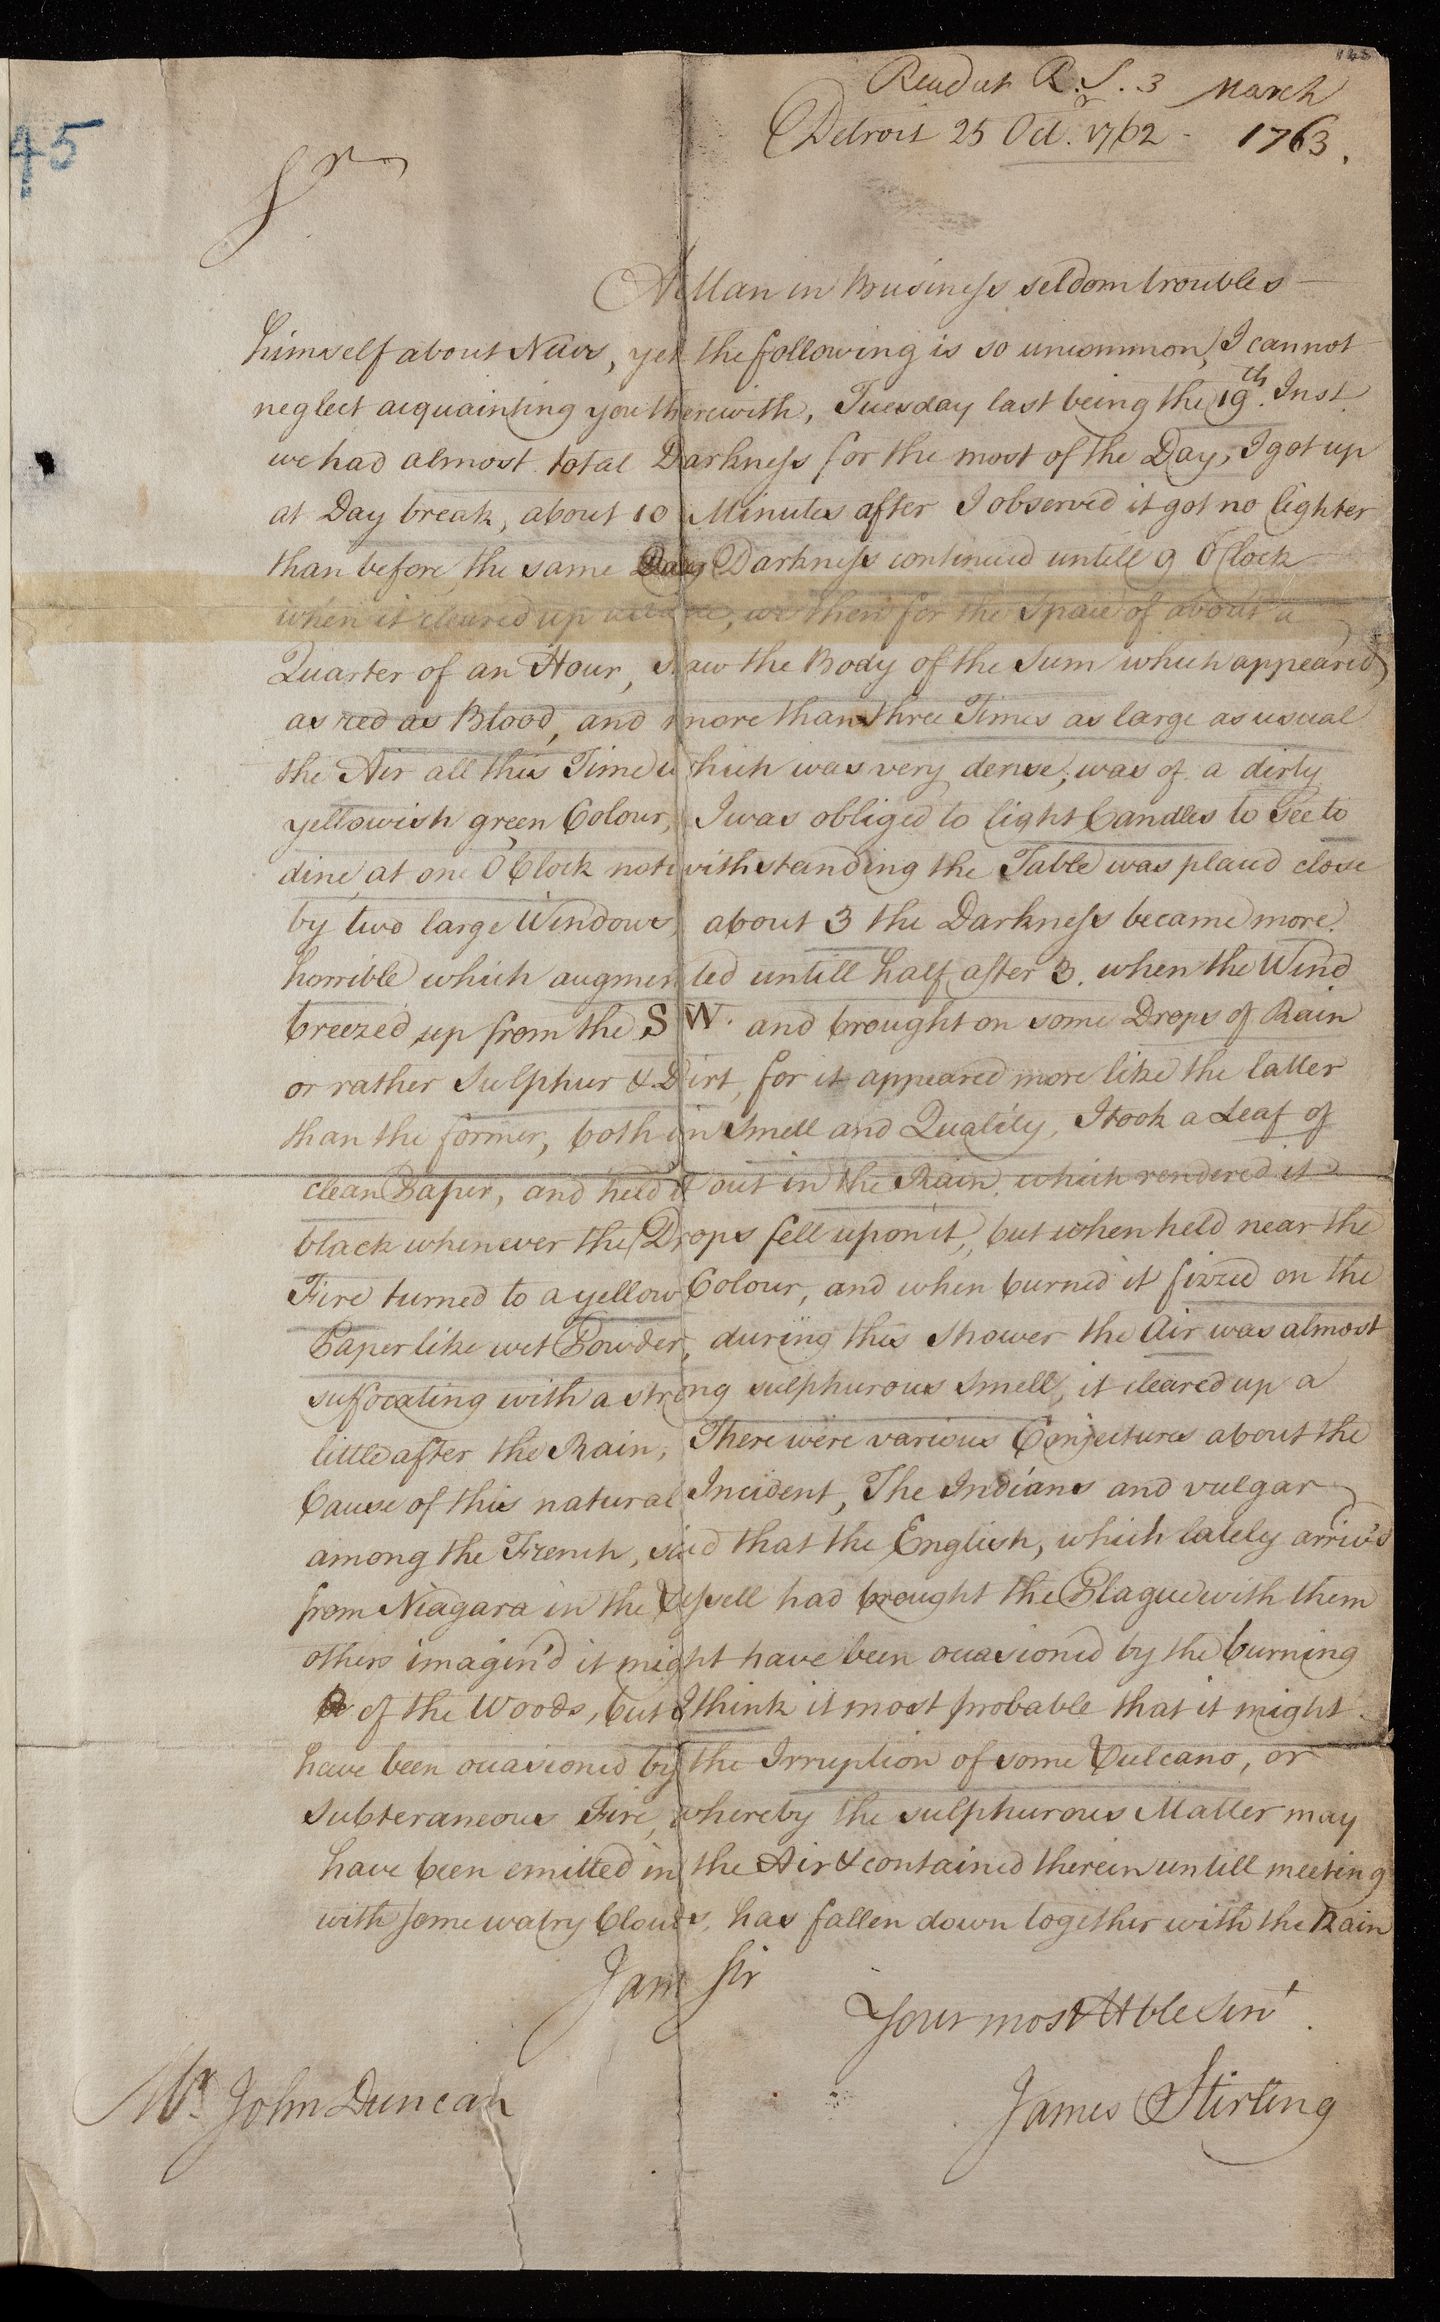 45
Read at R.S. 3 March
Detroit 25 Octr. 1762 - 1763.
Sr
A Man in Business seldom troubles
himself about News, yet the following is so uncommon, I cannot
neglect acquainting you therewith, Tuesday last being the 19th. Inst.
we had almost total Darkness for the most of the Day, I got up
at Day break, about 10 Minutes after I observed it got no lighter
than before, the same Darkness continued untill 9 OClock
when it cleared up a little, we then for the Space of about a
Quarter of an Hour, saw the Body of the Sun which appeared
as red as Blood, and more than three Times as large as usual
the Air all this Time which was very dense, was of a dirty
yellowish green Colour, I was obliged to light Candles to See to
dine at one OClock notwithstanding the Table was placed close
by two large Windows, about 3 the Darkness became more
horrible which augmented untill half after 3. when the Wind
breezed up from the S W. and brought on some Drops of Rain
or rather Sulphur & Dirt, for it appeared more like the latter
than the former, both in Smell and Quality, I took a Leaf of
clean Paper, and held it out in the Rain, which rendered it
black whenever the Drops fell upon it, but when held near the
Fire turned to a yellow Colour, and when burned it fizzed on the
Paper like wet Powder, during this Shower the Air was almost
suffocating with a strong sulphurous Smell, it cleared up a
little after the Rain, There were various Conjectures about the
Cause of this natural Incident, The Indians and vulgar
among the French, said that the English, which lately arriv'd
from Niagara in the Vessell had brought the Plague with them
others imagin'd it might have been occasioned by the burning
of the Woods, but I think it most probable that it might
have been occasioned by the Irruption of some Vulcano, or
Subteraneous Fire, whereby the sulphurous Matter may
have been emitted in the Air & contained therein untill meeting
with some watry Clouds, has fallen down together with the Rain
I am Sir
Your most Hble Servt.
James Stirling
Mr. John Duncan